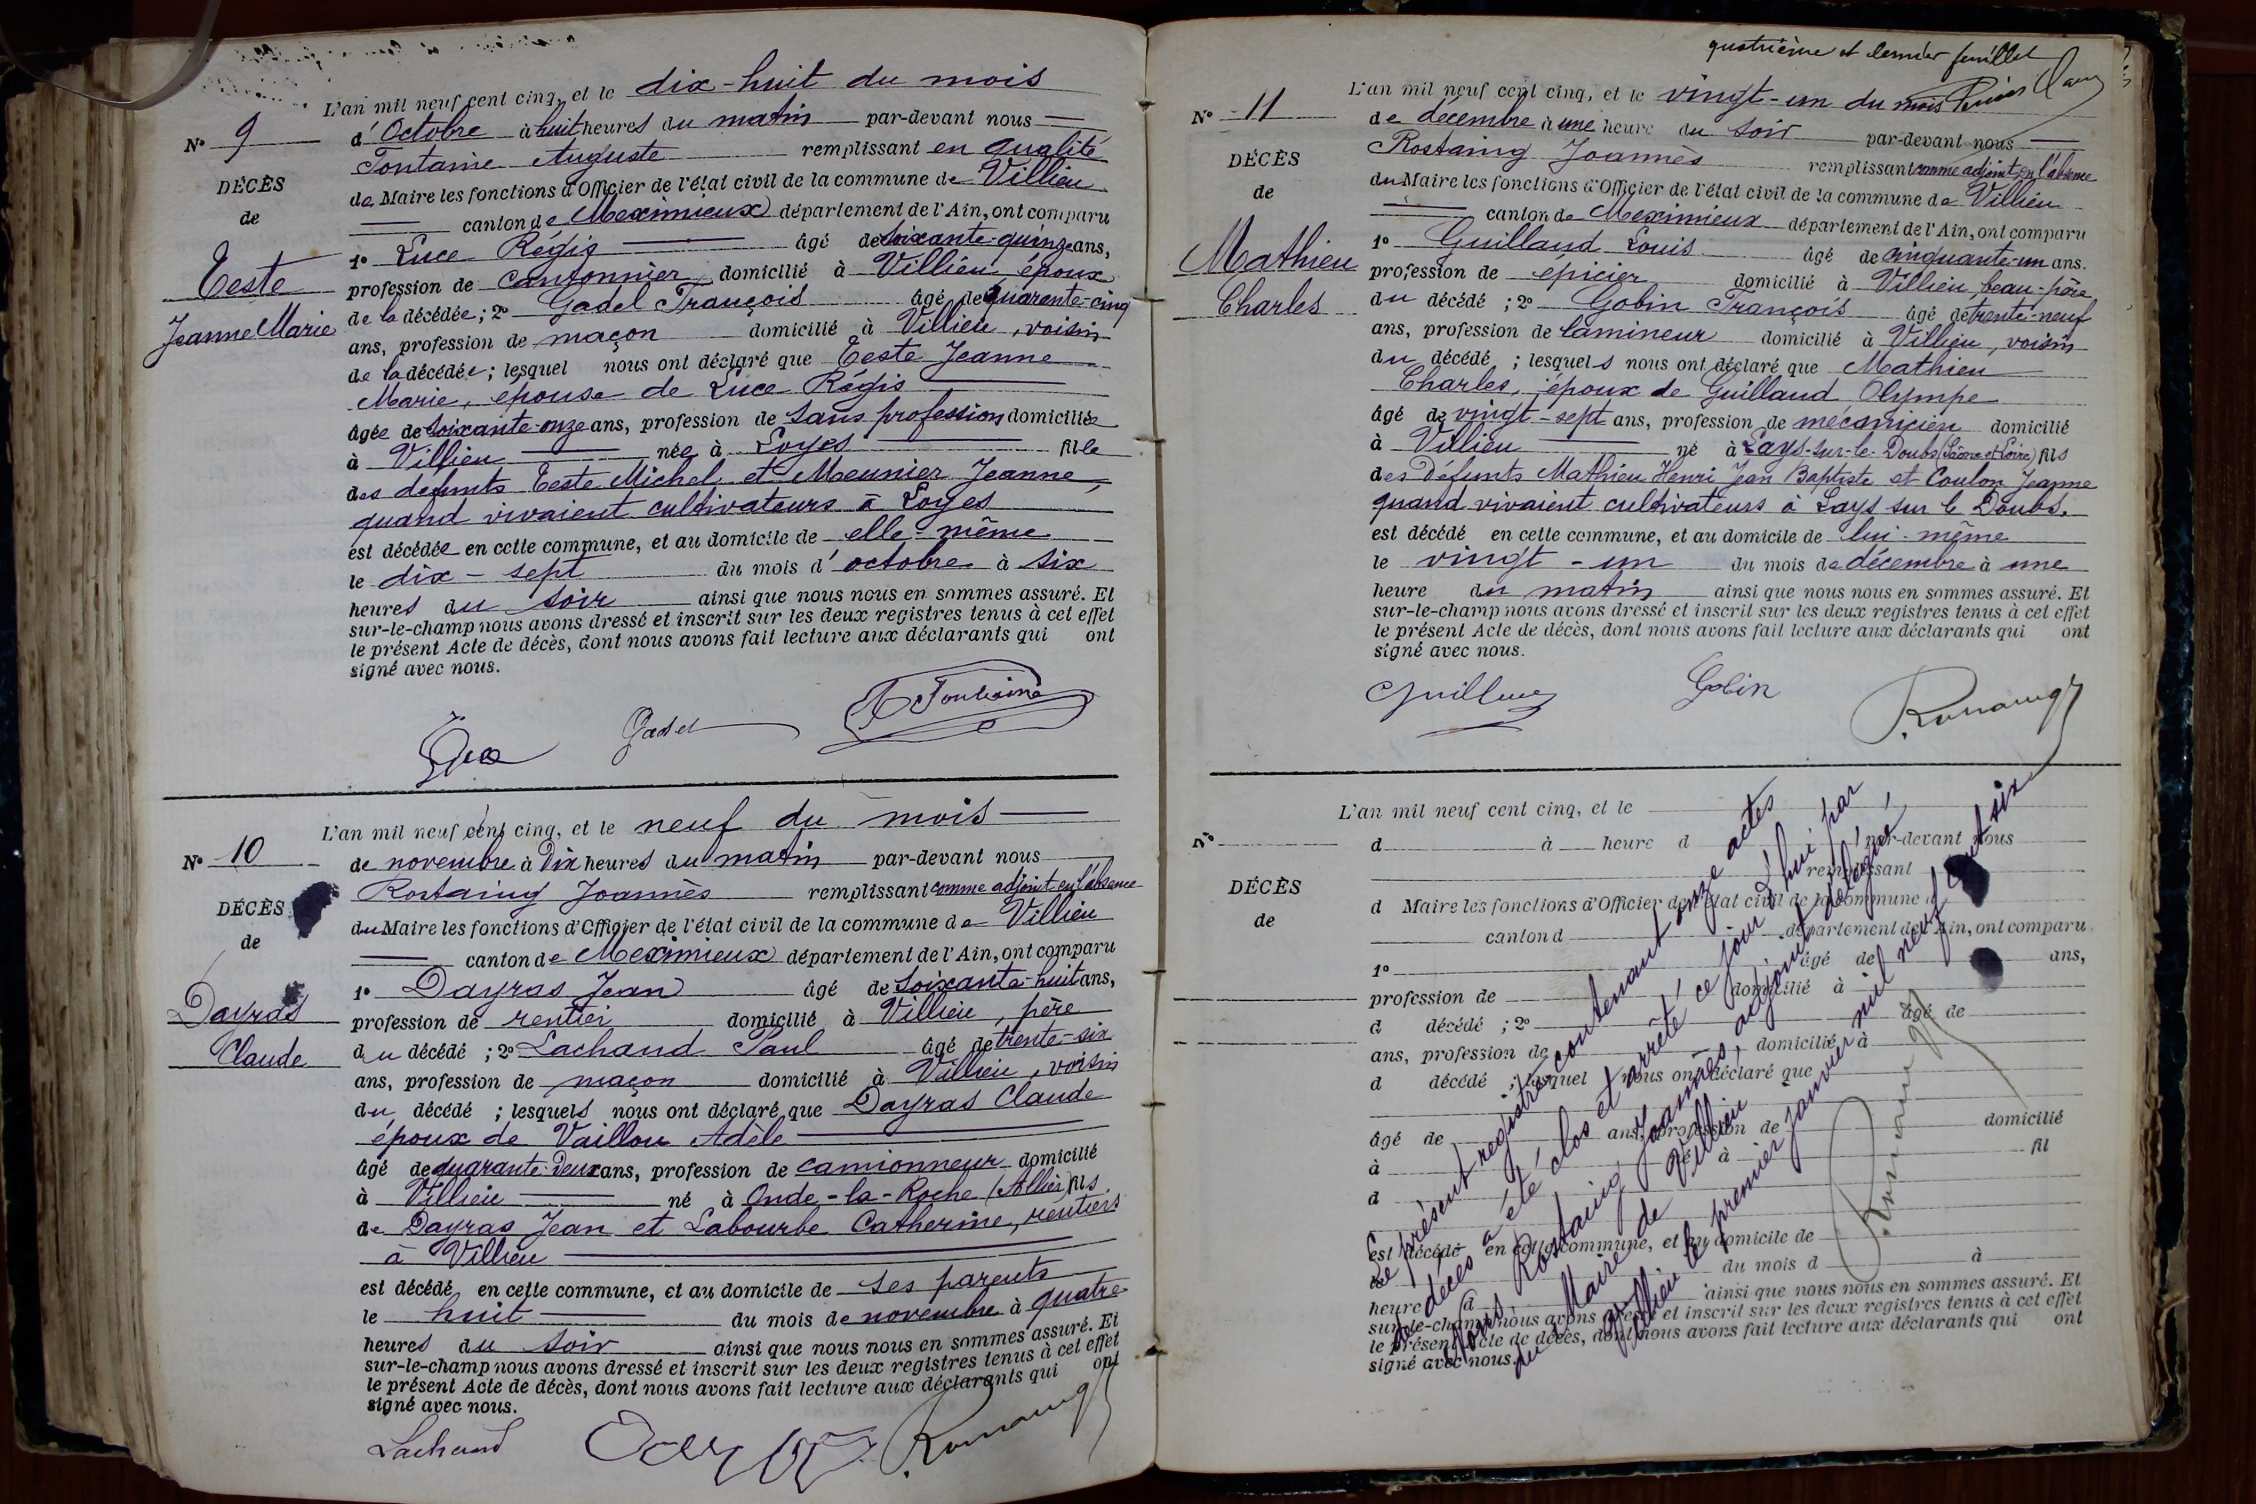 L'an mil neuf cent cinq, et le dix-huit du mois
N° 9
d'Octobre à huit heures du matin par-devant nous
Fontaine Auguste remplissant en qualité
DÉCÈS
de Maire les fonctions d'Officier de l'état civil de la commune de Villieu
de
canton de Meximieux département de l'Ain, ont comparu
Teste
1° Luce Régis âgé de soixante-quinze ans,
profession de cantonnier domicilié à Villieu époux
Jeanne Marie
de la décédée ; 2° Gadel François âgé de quarante-cinq
ans, profession de maçon domicilié à Villieu, voisin
de la décédée ; lesquel nous ont déclaré que Teste Jeanne
Marie, épouse de Luce Régis
âgée de soixante-onze ans, profession de sans profession domiciliée
à Villieu née à Loyes fille
des défunts Teste Michel et Meunier Jeanne,
quand vivaient cultivateurs à Loyes
est décédée en cette commune, et au domicile de elle-même
le dix-sept du mois d'octobre à six
heures du soir ainsi que nous nous en sommes assuré. Et
sur-le-champ nous avons dressé et inscrit sur les deux registres tenus à cet effet
le présent Acte de décès, dont nous avons fait lecture aux déclarants qui ont
signé avec nous.
Luce Gadel A Fontaine
L'an mil neuf cent cinq, et le neuf du mois
N° 10
de novembre à Dix heures du matin par-devant nous
Rostaing Joannès remplissant comme adjoint en l'absence
DÉCÈS
du Maire les fonctions d'Officier de l'état civil de la commune de Villieu
de
canton de Meximieux département de l'Ain, ont comparu
Dayras
1° Dayras Jean âgé de soixante-huit ans,
profession de rentier domicilié à Villieu, père
Claude
du décédé ; 2° Lachand Paul âgé de trente-six
ans, profession de maçon domicilié à Villieu, voisin
du décédé ; lesquels nous ont déclaré que Dayras Claude
époux de Vaillon Adèle
âgé de quarante-Deux ans, profession de camionneur domicilié
à Villieu né à Onde-la-Roche (Allier) fils
de Dayras Jean et Labourbe Catherine, rentiers
à Villieu
est décédé en cette commune, et au domicile de ses parents
le huit du mois de novembre à quatre
heures du soir ainsi que nous nous en sommes assuré. Et
sur-le-champ nous avons dressé et inscrit sur les deux registres tenus à cet effet
le présent Acte de décès, dont nous avons fait lecture aux déclarants qui ont
signé avec nous.
Lachand
quatrième et dernier feuillet
L'an mil neuf cent cinq, et le vingt-un du mois
N° 11
de décembre à une heure du soir par-devant nous
Rostaing Joannès remplissant comme adjoint en l'absence
DÉCÈS
du Maire les fonctions d'Officier de l'état civil de la commune de Villieu
de
canton de Meximieux département de l'Ain, ont comparu
Mathieu
1° Guilland Louis âgé de cinquante-un ans.
profession de épicier domicilié à Villieu, beau-père
Charles
du décédé ; 2° Gobin François âgé de trente-neuf
ans, profession de lamineur domicilié à Villieu, voisin
du décédé ; lesquels nous ont déclaré que Mathieu
Charles, époux de Guilland Olympe
âgé de vingt-sept ans, profession de mécanicien domicilié
à Villieu né à Lays-sur-le-Doubs (Saône et Loire) fils
des Défunts Mathieu Henri Jean Baptiste et Coulon Jeanne
quand vivaient cultivateurs à Lays sur le Doubs.
est décédé en cette commune, et au domicile de lui-même
le vingt-un du mois de décembre à une
heure du matin ainsi que nous nous en sommes assuré. Et
sur-le-champ nous avons dressé et inscrit sur les deux registres tenus à cet effet
le présent Acte de décès, dont nous avons fait lecture aux déclarants qui ont
signé avec nous.
Gobin
L'an mil neuf cent cinq, et le
N°
d à heure d par-devant nous
remplissant
DÉCÈS
d Maire les fonctions d'Officier de l'état civil de la commune d
de
canton d département de l'Ain, ont comparu
1° âgé de ans,
profession de domicilié à
d décédé ; 2° âgé de
ans, profession de domicilié à
d décédé ; lesquel nous ont déclaré que
âgé de ans, profession de domicilié
à né à fil
d
est décédé en cette commune, et au domicile de
le du mois d à
heure d ainsi que nous nous en sommes assuré. Et
sur-le-champ nous avons dressé et inscrit sur les deux registres tenus à cet effet
le présent Acte de décès, dont nous avons fait lecture aux déclarants qui ont
signé avec nous.
Le présent registre contenant onze actes
de décès a été clos et arrêté ce jour d'hui par
Nous Rostaing Joannès, adjoint délégué,
du Maire de Villieu
à Villieu le premier janvier mil neuf cent six